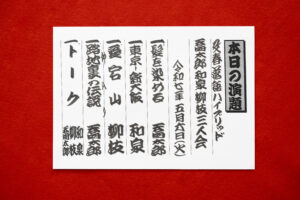 本日の演題
文春落語ハイブリッド
喬太郎 和泉 柳枝 三人会
令和七年 五月六日(火)
一 髪を染める 喬太郎
一 東京新大阪 和泉
一 愛宕山 柳枝
一 路地裏の伝説 喬太郎
一 トーク 和泉 柳枝 喬太郎